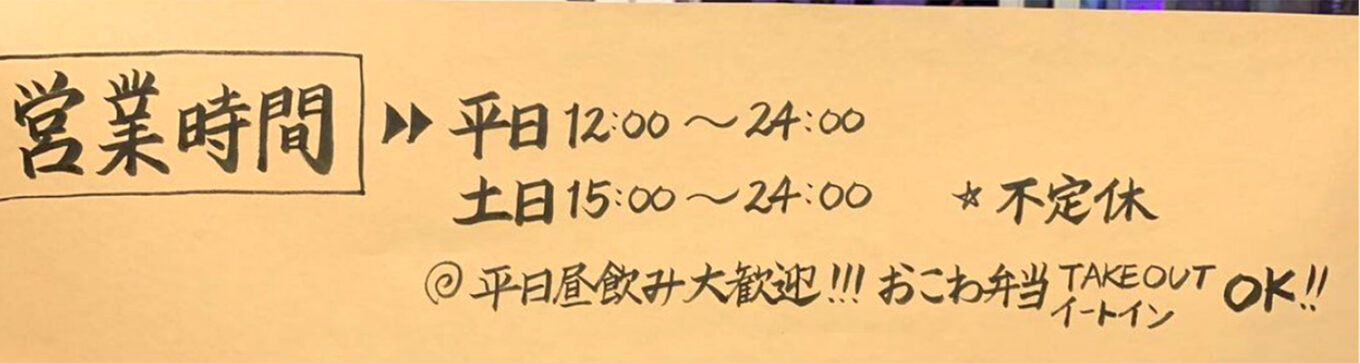 営業時間 ▶▶ 平日 12:00 〜 24:00
土日 15:00 〜 24:00 ☆ 不定休
◎ 平日昼飲み大歓迎!!! おこわ弁当 TAKEOUT イートイン OK!!